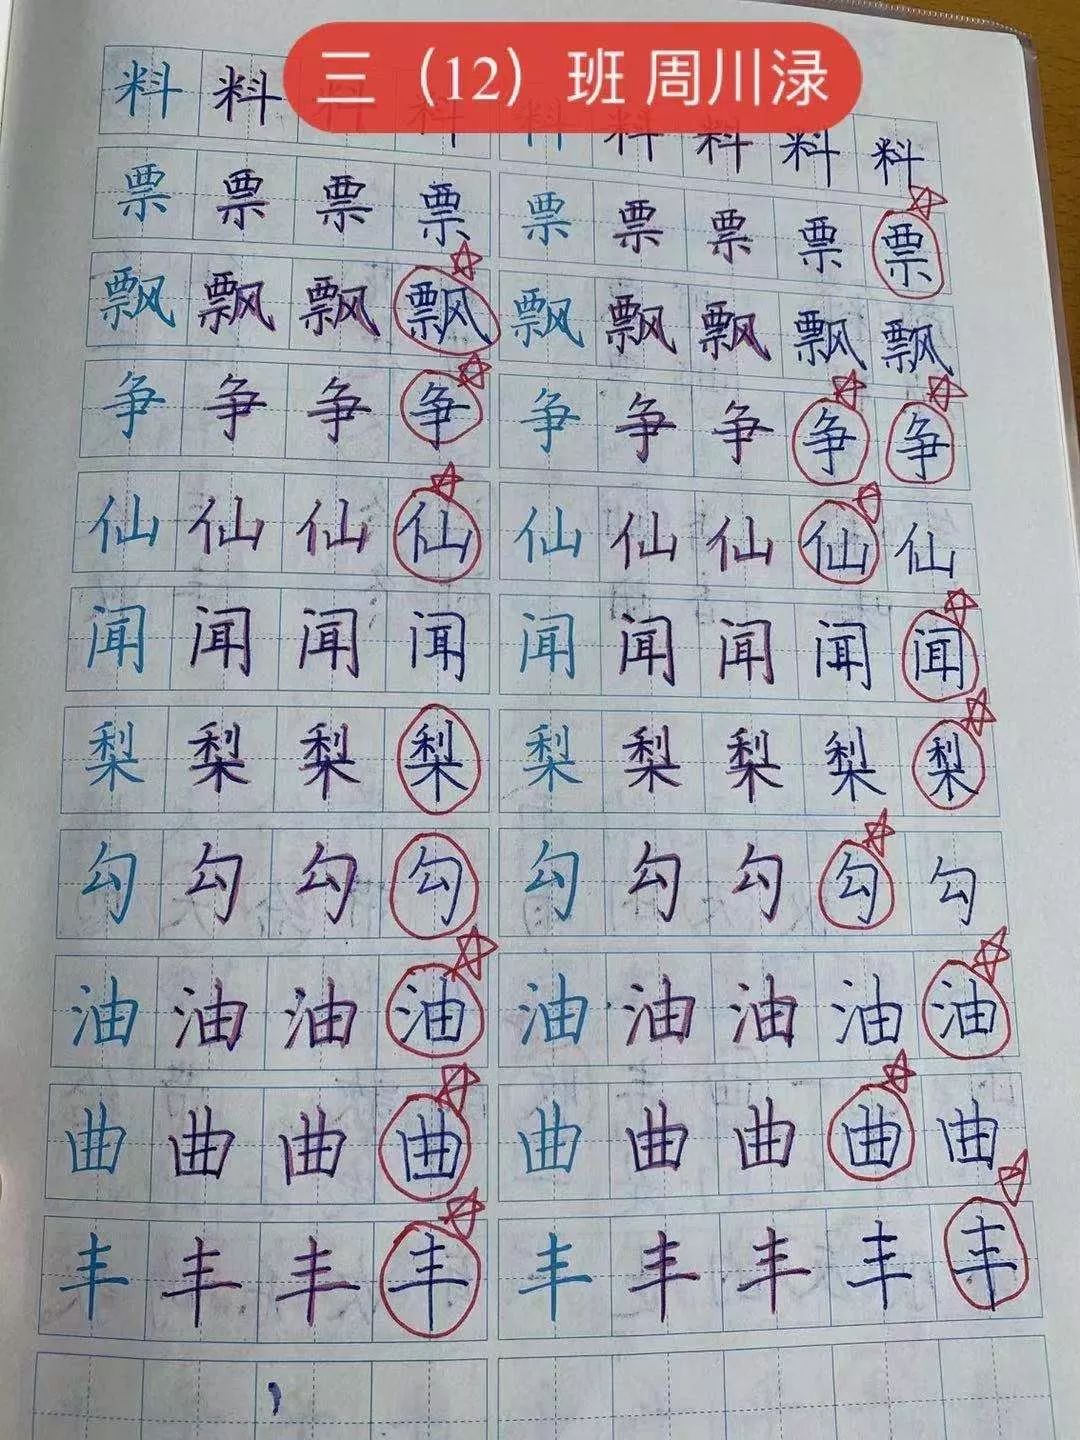 三（12）班 周川渌
料 料 料 料 料 料 料 料 料
票 票 票 票 票 票 票 票 票
飘 飘 飘 飘 飘 飘 飘 飘 飘
争 争 争 争 争 争 争 争 争
仙 仙 仙 仙 仙 仙 仙 仙 仙
闻 闻 闻 闻 闻 闻 闻 闻 闻
梨 梨 梨 梨 梨 梨 梨 梨 梨
勾 勾 勾 勾 勾 勾 勾 勾 勾
油 油 油 油 油 油 油 油 油
曲 曲 曲 曲 曲 曲 曲 曲 曲
丰 丰 丰 丰 丰 丰 丰 丰 丰